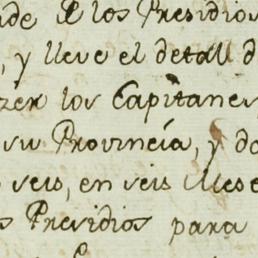 de â los Presidios
, y lleve el detall d
zèr los Capitanes
su Provincia, y de
seis, en seis Mese
s Presidios para